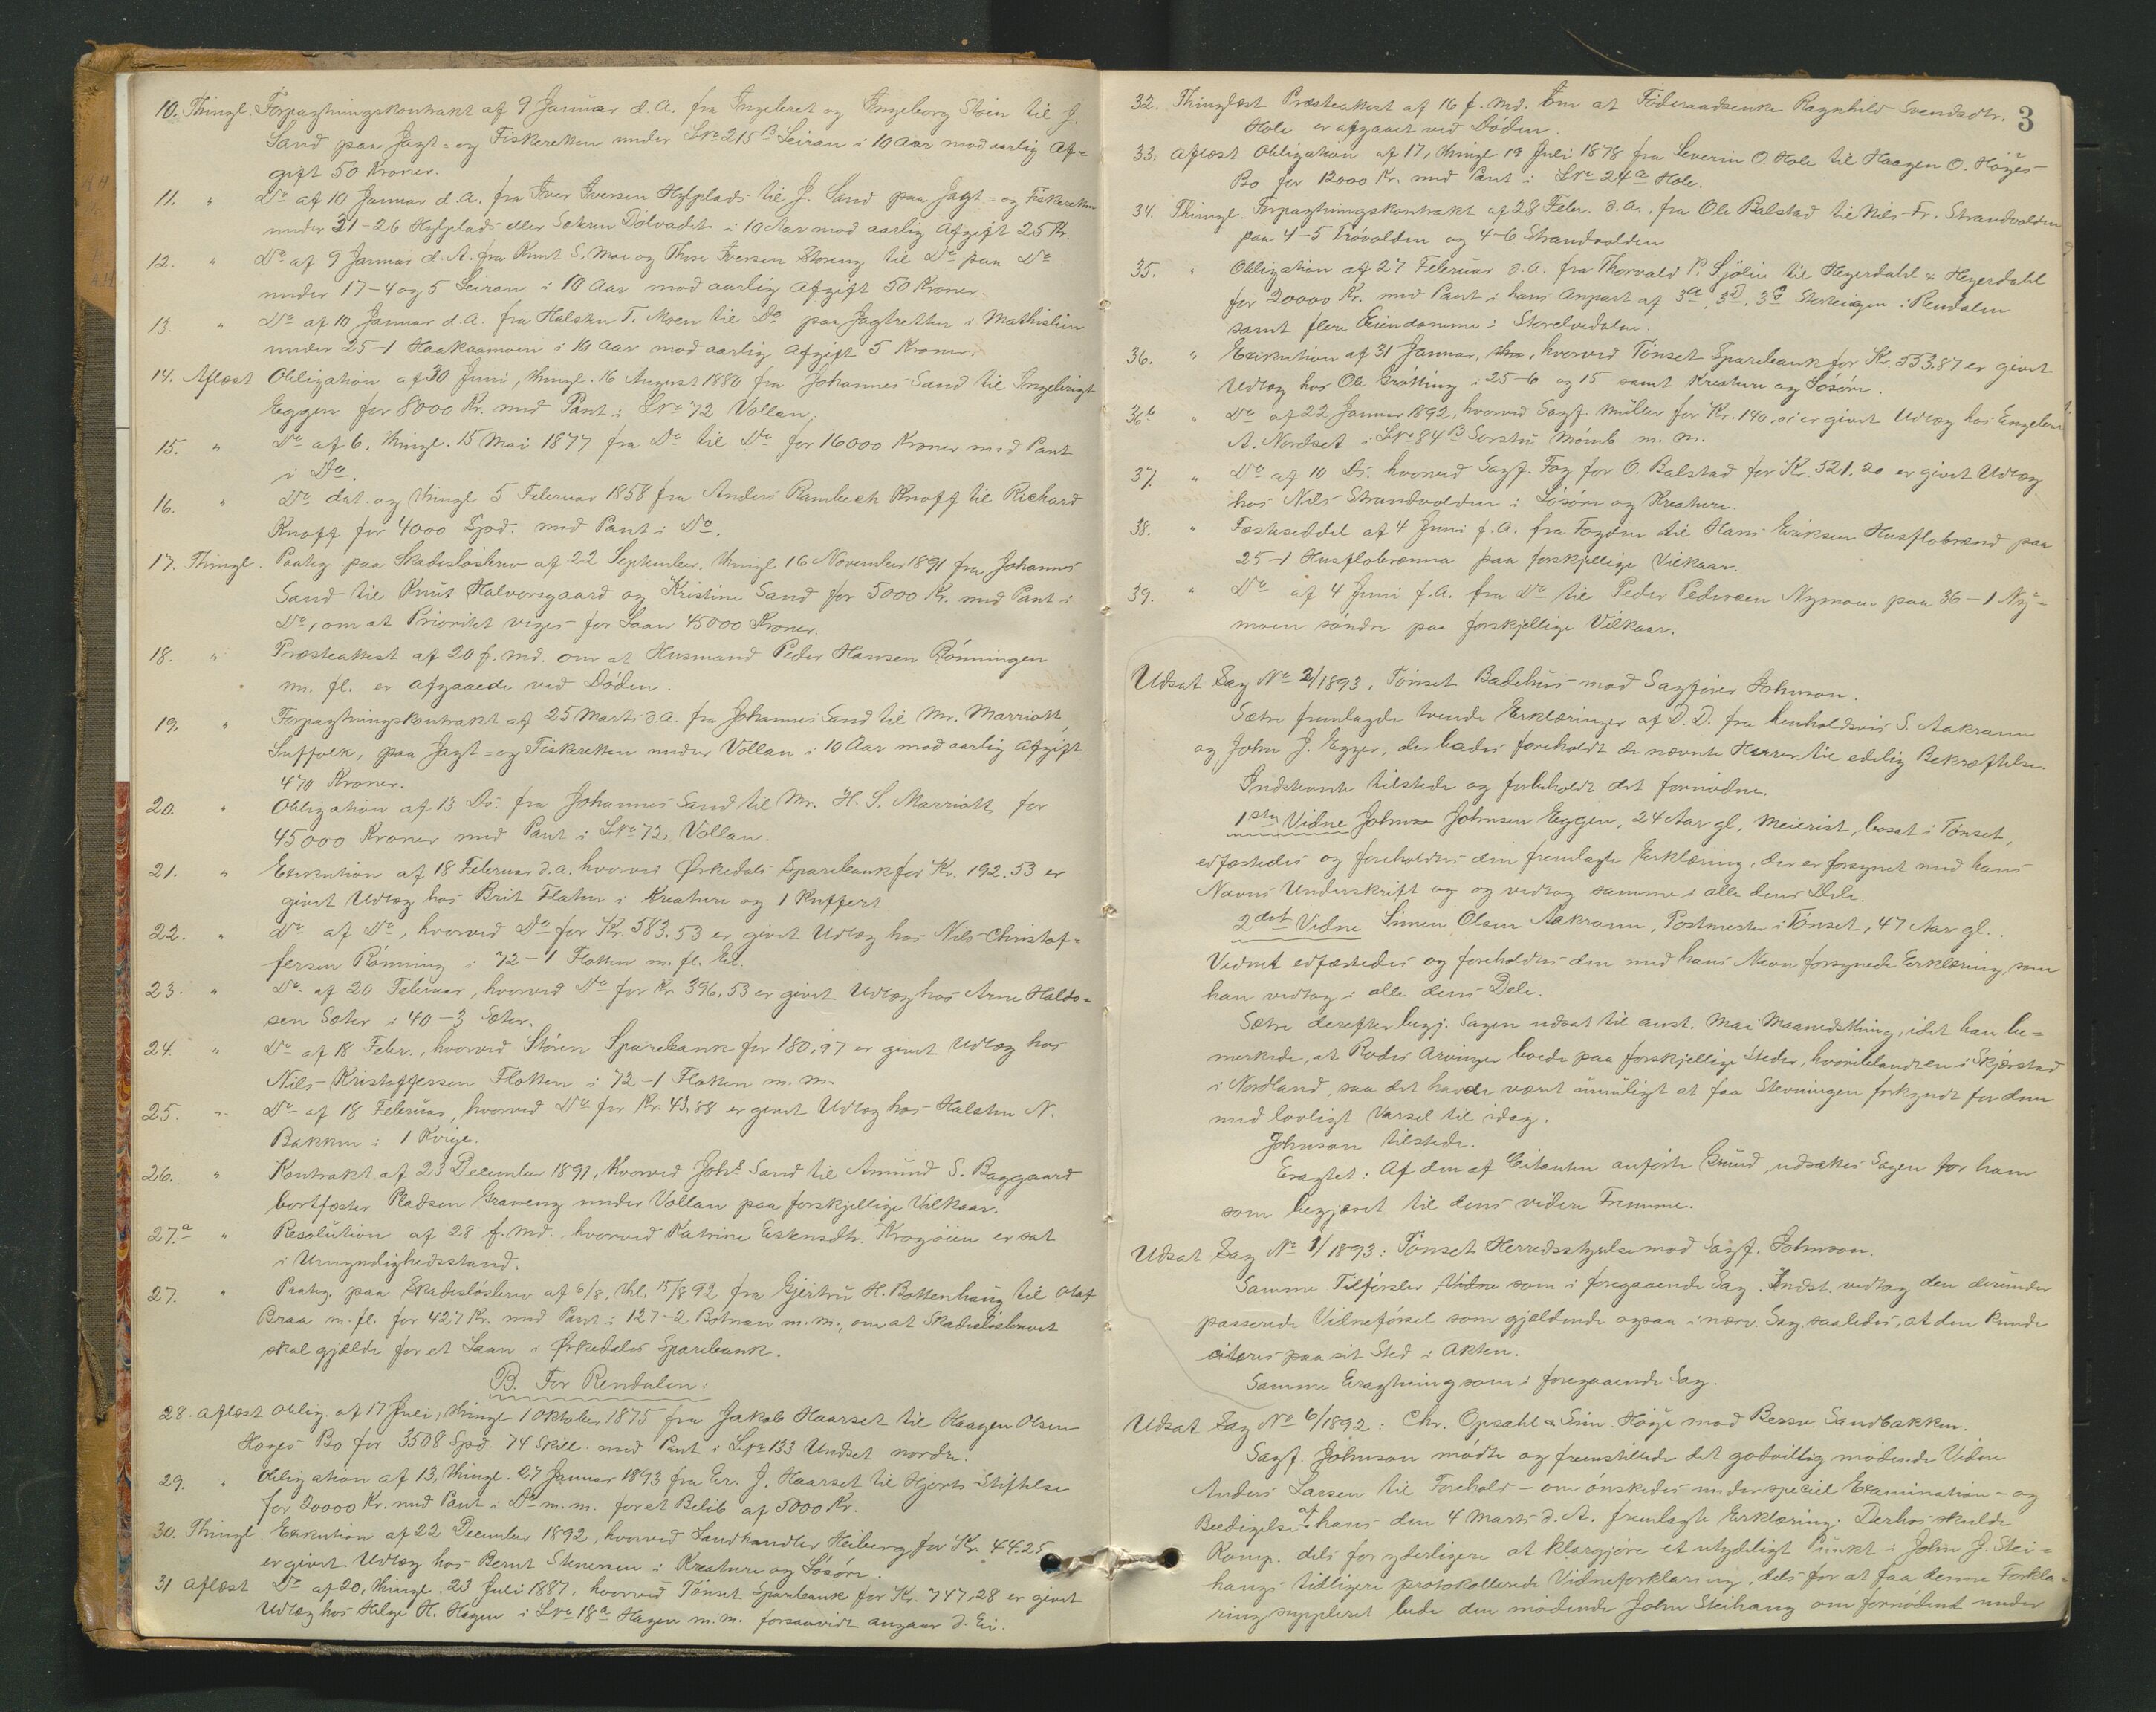 10. Thingl. Forpagtningskontrakt af 9 Januar d. A. fra Ingebret og Ingeborg Stoen til J.
Sand paa Jagt- og Fiskeretten under LNo 215 B Leiran i 10 Aar mod aarlig Af-
gift 50 Kroner.
11. " Do af 10 Januar d. A. fra Iver Iversen Hylplads til J. Sand paa Jagt- og Fiskeretten
under 31-26 Hylplads eller Sæteren Dölvadet i 10 Aar mod aarlig Afgift 25 Kr.
12. " Do af 9 Januar d. A. fra Knut S. Moe og Thore Iversen Storeng til Do paa Do
under 17-4 og 5 Leiran i 10 Aar mod aarlig Afgift 50 Kroner.
13. " Do af 10 Januar d. A. fra Halsten T. Moen til Do paa Jagtretten i Mathislien
under 25-1 Haakaamoen i 10 Aar mod aarlig Afgift 5 Kroner.
14. Aflæst Obligation af 30 Juni, thingl. 16 August 1880 fra Johannes Sand til Ingebrigt
Eggen for 8000 Kr. med Pant i LNo 72 Vollan.
15. " Do af 6, thingl. 15 Mai 1877 fra Do til Do for 16000 Kroner med Pant
i Do.
16. " Do dat. og thingl 5 Februar 1858 fra Anders Rambech Knoff til Richard
Knoff for 4000 Spd. med Pant i Do.
17. Thingl. Paateg. paa Skadesløsbrev af 22 September, thingl 16 November 1891 fra Johannes
Sand til Knut Halvorsgaard og Kristine Sand for 5000 Kr. med Pant i
Do, om at Prioritet viges for Laan 45000 Kroner.
18. " Præsteattest af 20 f. Md. om at Husmand Peder Hansen Rönningen
m. fl. er afgaaede ved Döden.
19. " Forpagtningskontrakt af 25 Marts d. A. fra Johannes Sand til Mr. Marriott,
Suffolk, paa Jagt- og Fiskeretten under Vollan i 10 Aar mod aarlig Afgift
470 Kroner.
20. " Obligation af 13 Ds. fra Johannes Sand til Mr. H. S. Marriott for
45000 Kroner med Pant i LNo 72 Vollan.
21. " Exekution af 18 Februar d. A. hvorved Ørkedals Sparebank for Kr. 192.53 er
givet Udlæg hos Brit Flaten i Kreature og 1 Kuffert
22. " Do af Do, hvorved Do for Kr. 583.53 er givet Udlæg hos Nils Christof-
fersen Rönning i 72-1 Flotten m. fl. Ei.
23. " Do af 20 Februar, hvorved Do for Kr. 396.53 er givet Udlæg hos Arne Haldo-
sen Sæter i 40-3 Sæter.
24. " Do af 18 Febr., hvorved Stören Sparebank for 180,97 er givet Udlæg hos
Nils Kristoffersen Flotten i 72-1 Flotten m. m.
25. " Do af 18 Februar, hvorved Do for Kr. 43,88 er givet Udlæg hos Halsten N.
Bakken i 1 Kvige.
26. " Kontrakt af 23 December 1891, hvorved Johs Sand til Amund S. Baggaard
bortfæster Pladsen Graneng under Vollan paa forskjellige Vilkaar.
27.a " Resolution af 28 f. Md. hvorved Katrine Estensdtr. Krogöien er sat
i Umyndighedsstand.
27. " Paateg. paa Skadeslösbrev af 6/8, thl. 15/8 92 fra Gjertru H. Bottenhaug til Olaf
Braa m. fl. for 427 Kr. med Pant i 127-2 Botnan m. m., om at Skadeslösbrevet
skal gjælde for et Laan i Ørkedals Sparebank.
B. For Rendalen:
28. Aflæst Oblig. af 17 Juli, thingl 1 Oktober 1875 fra Jakob Haarset til Haagen Olsen
Høyes Bo for 3508 Spd. 74 Skill. med Pant i LNo 133 Undset nordre.
29. " Obligation af 13, thingl. 27 Januar 1893 fra Er. J. Haarset til Hjorts Stiftelse
for 20000 Kr. med Pant i Do m. m. for et Belöb af 5000 Kr.
30. Thingl. Exekution af 22 December 1892, hvorved Landhandler Heiberg for Kr. 44.25
er givet Udlæg hos Bernt Stenersen i Kreature og Lösöre.
31 Aflæst Do af 20, thingl. 23 Juli 1887, hvorved Tönset Sparebank for Kr. 747.28 er givet
Udlæg hos Helge H. Hagen i LNo 18a Hagen m. m. forsaavidt angaar d. Ei.
3
32. Thinglæst Præsteattest af 16 f. Md. om at Föderaadsenke Ragnhild Svendsdtr.
Hole er afgaaet ved Döden.
33. Aflæst Obligation af 17, thingl 19 Juli 1878 fra Severin O. Hole til Haagen O. Höyes
Bo for 12000 Kr. med Pant i LNo 24a Hole.
34. Thingl. Forpagtningskontrakt af 28 Febr. d. A. fra Ole Balstad til Nils Fr. Strandvolden
paa 4-5 Trövolden og 4-6 Strandvolden
35. " Obligation af 27 Februar d. A. fra Thorvald P. Sjölie til Heyerdahl & Heyerdahl
for 20000 Kr. med Pant i hans Anpart af 3a 3d, 3e i Rendalen
samt flere Eiendomme i Storelvedalen.
36. " Exekution af 31 Januar, hvorved Tönset Sparebank for Kr. 553.87 er givet
Udlæg hos Ole Grötting i 25-6 og 15 samt Kreature og Lösöre.
36b " Do af 22 Januar 1892, hvorved Sagf. Müller for Kr. 140.01 er givet Udlæg hos Engebret
A. Nordset i LNo 84 B Sorstu Mömb m. m.
37. " Do af 10 Ds. hvorved Sagf. Fog for O. Balstad for Kr. 521.20 er givet Udlæg
hos Nils Strandvolden i Lösöre og Kreature.
38. " Fæsteseddel af 4 Juni f. A. fra Fogden til Hans Eriksen Husflobrænd paa
25-1 Husflobrænna paa forskjellige Vilkaar.
39. " Do af 4 Juni f. A. fra Do til Peder Pedersen Nymoen paa 36-1 Ny-
moen söndre paa forskjellige Vilkaar.
Udsat Sag No 2/1893, Tönset Badehus mod Sagförer Johnson.
Sætre fremlagde tvende Erklæringer af D. D. fra henholdsvis S. Aakrann
og John J. Eggen, der bades foreholdt de nævnte Herrer til edelig Bekræftelse.
Indstevnte tilstede og forbeholdt det fornødne.
1ste Vidne Johnsen Eggen, 24 Aar gl, Meierist, bosat i Tönset,
edfæstedes og foreholdtes den fremlagte Erklæring, der er forsynet med hans
Navns Underskrift og og vedtog samme i alle dens Dele.
2det Vidne Simen Olsen Aakrann, Postmester i Tönset, 47 Aar gl.
Vidnet edfæstedes og foreholdtes den med hans Navn forsynede Erklæring, som
han vedtog i alle dens Dele.
Sætre derefter begj. Sagen udsat til anst. Mai Maanedsthing, idet han be-
mærkede, at Rodes Arvinger boede paa forskjellige Steder, hvoriblandt en i Skjærstad
i Nordland, saa det havde været umuligt at faa Stevningen forkyndt for dem
med lovligt Varsel til idag.
Johnson tilstede.
Eragtet: Af den af Citanten anførte Grund udsættes Sagen for ham
som begjæret til dens videre Fremme.
Udsat Sag No 1/1893: Tönset Herredsstyrelse mod Sagf. Johnson.
Samme Tilførsler Vidne som i foregaaende Sag. Indst. vedtog den derunder
passerede Vidneförsel som gjældende ogsaa i nærv. Sag, saaledes, at den kunde
citeres paa sit Sted i Akten.
Samme Eragtning som i foregaaende Sag.
Udsat Sag No 6/1892: Chr. Opsahl & Sim. Höye mod Bersv. Sandbakken.
Sagf. Johnson mödte og fremstillede det godvillig mödende Vidne
Anders Larsen til Forehold - om önskedes under speciel Examination - og
Beedigelse af hans den 4 Marts d. A. fremlagte Erklæring. Derhos skulde
Komp. dels for yderligere at klargjöre et utydeligt Punkt i John J. Stei-
haugs tidligere protokollerede Vidneforklaring, dels for at faa denne Forkla-
ring suppleret bede den mødende John Steihaug om fornödent under